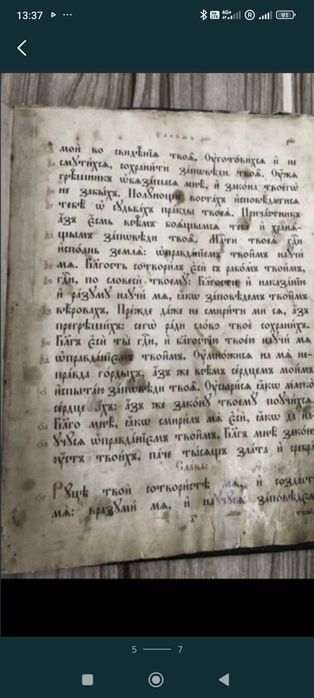 13:37
4G+
R
91
мои̑ во свидѣ́нїѧ твоѧ̑. Оу҆гото́вихсѧ и҆ не
смути́хсѧ, сохрани́ти за́повѣди твоѧ̑. Оу҆́жѧ
грѣ́шникъ ѡ҆бѧза́шасѧ мнѣ̀, и҆ зако́на твоегѡ̀
не забы́хъ. Полу́нощи воста́хъ и҆сповѣ́датисѧ
тебѣ̀ ѡ҆ судьба́хъ пра́вды твоеѧ̀. Прича́стникъ
а҆́зъ є҆́смь всѣ̑мъ боѧ́щымсѧ тебѐ и҆ хранѧ́-
щымъ за́повѣди твоѧ̑. Мл҇ти твоеѧ̀ гд҇и
и҆спо́лнь землѧ̀: ѡ҆правда́нїємъ твои̑мъ научи́
мѧ. Бл҃гость сотвори́лъ є҆сѝ съ рабо́мъ твои́мъ,
гд҇и, по словесѝ твоему̀: Бл҃гостѝ и҆ наказа́нїю
и҆ ра́зуму научи́ мѧ, ꙗ҆́кѡ за́повѣдемъ твои̑мъ
вѣ́ровахъ. Пре́жде да́же не смири́ти ми сѧ, а҆́зъ
прегрѣши́хъ: сегѡ̀ ра́ди сло́во твоѐ сохрани́хъ.
Бл҃гъ є҆сѝ ты̀ гд҇и, и҆ бл҃гостїю твое́ю научи́ мѧ
ѡ҆правда́нїємъ твои̑мъ. Оу҆мно́жисѧ на мѧ̀ не-
пра́вда го́рдыхъ, а҆́зъ же всѣ́мъ се́рдцемъ мои́мъ
и҆спыта́ю за́повѣди твоѧ̑. Оу҆сыри́сѧ ꙗ҆́кѡ млеко̀
се́рдце и҆́хъ: а҆́зъ же зако́ну твоему̀ поучи́хсѧ.
Бл҃го мнѣ̀, ꙗ҆́кѡ смири́лъ мѧ̀ є҆сѝ, ꙗ҆́кѡ да на-
учу́сѧ ѡ҆правда́нїємъ твои̑мъ. Бл҃гъ мнѣ̀ зако́нъ
оу҆́стъ твои́хъ, па́че ты́сѧщъ зла́та и҆ сребра̀
Сла́ва:
Ру́цѣ твоѝ сотвори́стѣ мѧ̀, и҆ созда́ст
мѧ: вразуми́ мѧ, и҆ научу́сѧ за́повѣдє
5
7